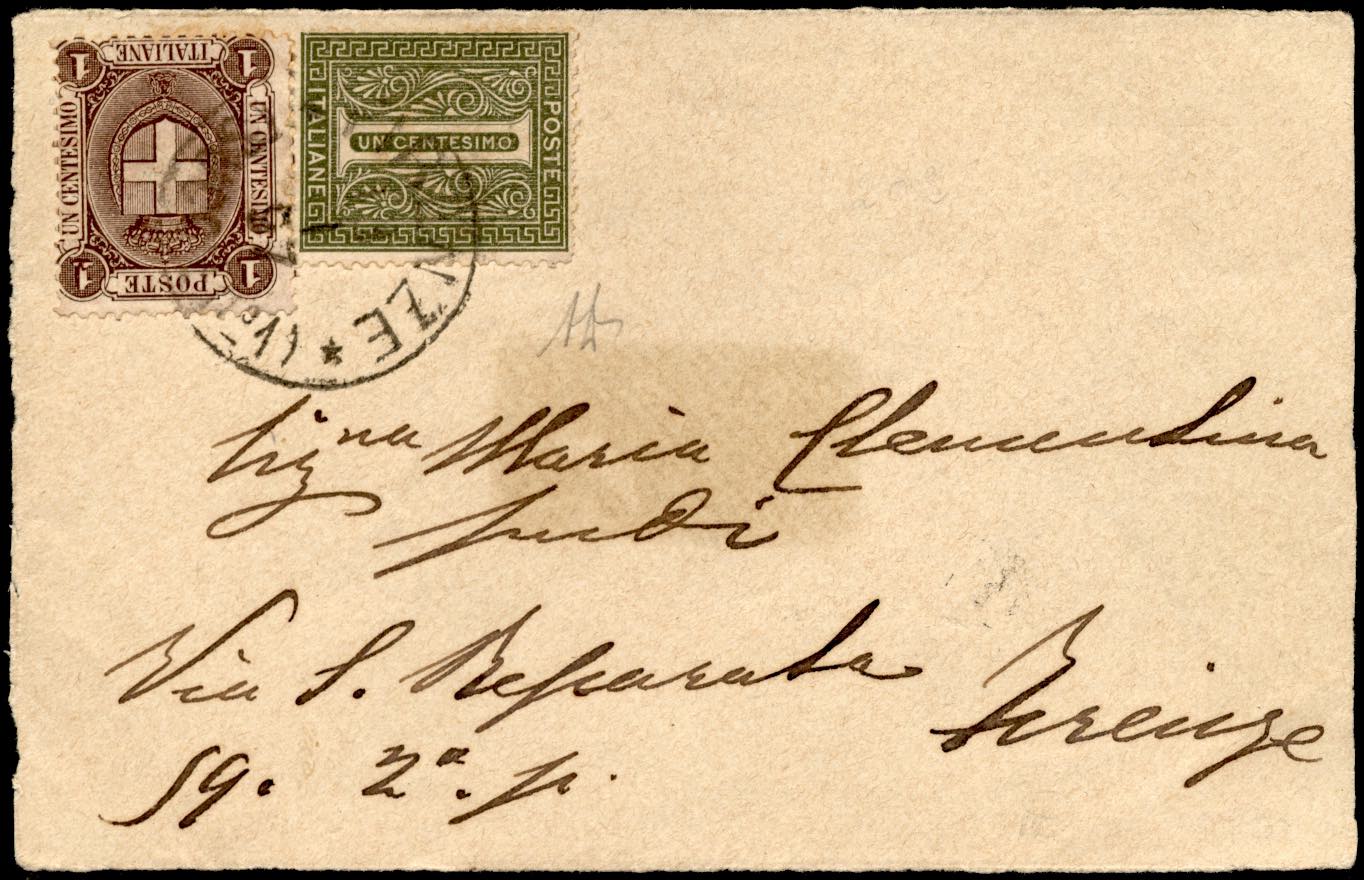 1 ITALIANE 1
UN CENTESIMO
UN CENTESIMO
1 POSTE 1
ITALIANE
UN CENTESIMO
POSTE
NZE * (V
Sig.na Maria Clementina
Via S. Reparata
Firenze
59. 2a. p.